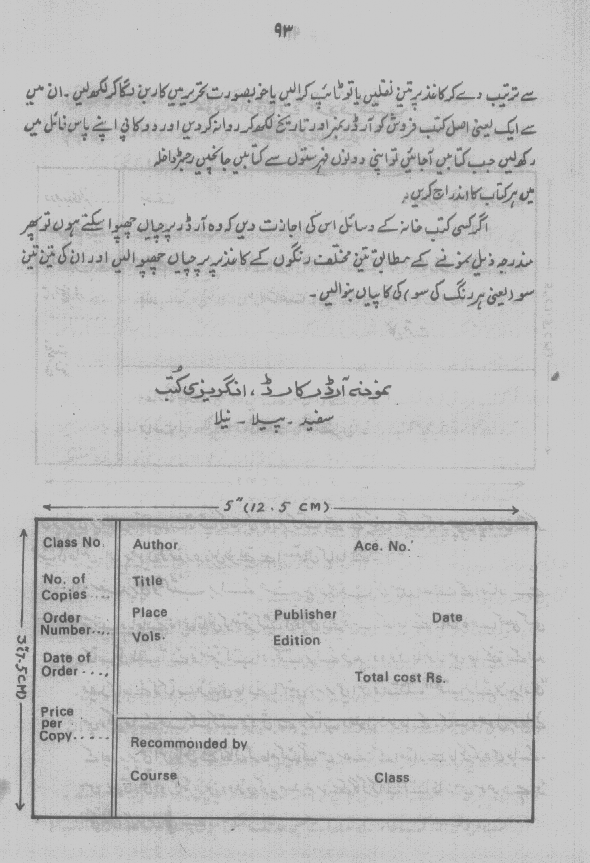 ۹۳
سے ترتیب دے کر کاغذ پر تین نقلیں یا تو ٹائپ کرالیں یا خوبصورت تحریر میں کاربن لگا کر لکھ لیں ۔ ان میں
سے ایک یعنی اصل کتب فروش کو آرڈر نمبر اور تاریخ لکھ کر روانہ کردیں اور دو کاپی اپنے پاس فائل میں
رکھ لیں جب کتابیں آجائیں تو اپنی دونوں فہرستوں سے کتابیں جانچیں رجسٹر داخلہ
میں ہر کتاب کا اندراج کریں ۔
اگر کسی کتب خانہ کے وسائل اس کی اجازت دیں کہ وہ آرڈر پرچیاں چھپوا سکتے ہوں تو پھر
مندرجہ ذیل نمونے کے مطابق تین مختلف رنگوں کے کاغذ پر پرچیاں چھپوالیں اور ان کی تین تین
سو یعنی ہر رنگ کی سو کی کاپیاں بنوالیں ۔
نمونہ آرڈر کارڈ ، انگریزی کُتب
سفید ۔ پیلا ۔ نیلا
5" (12.5 CM)
3" (7.5 CM)
Class No. Author Ace. No.
No. of Title
Copies
Order Place Publisher Date
Number.... Vols. Edition
Date of
Order .... Total cost Rs.
Price
per
Copy.....
Recommonded by
Course Class